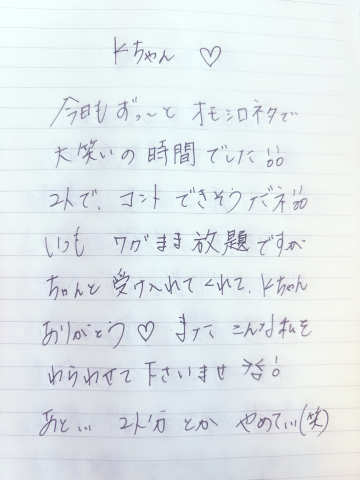 Kちゃん ♡
今日もずっ〜と オモシロネタで
大笑いの時間でした!!
2人で、コントできそうだネ!!
いつも ワガまま放題ですが
ちゃんと受け入れてくれて、Kちゃん
ありがとう♡ また こんな私を
わらわせて下さいませ
あと… とか やめてぃ(笑)